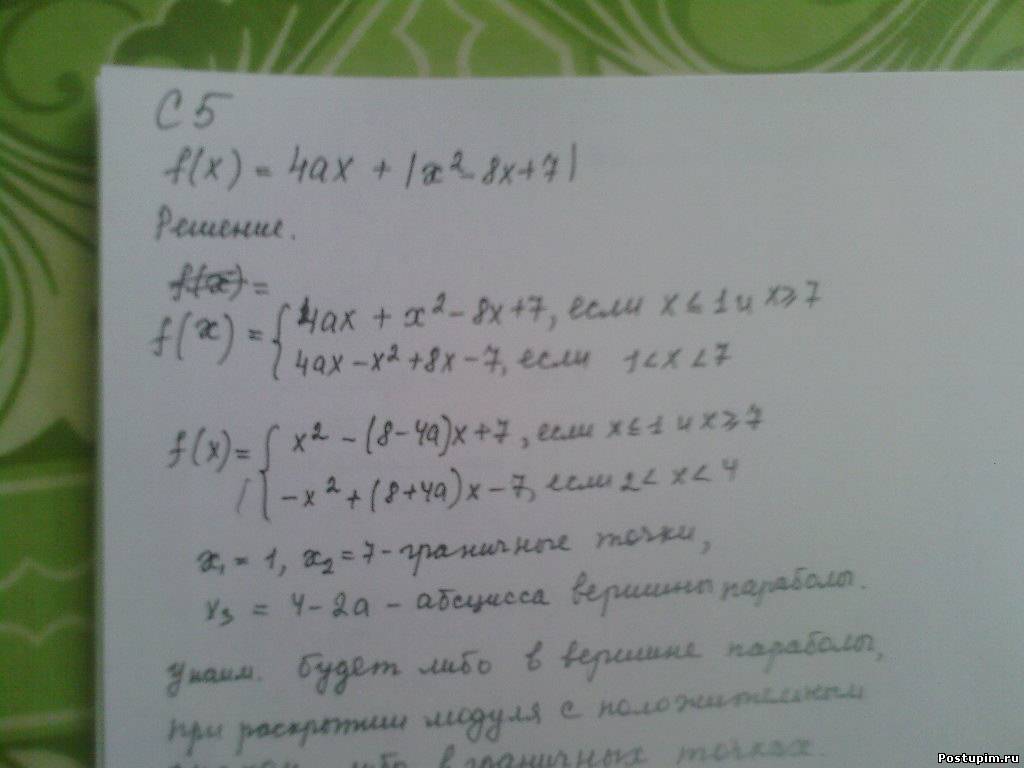 С 5
f(x) = 4ax + |x² - 8x + 7|
Решение.
f(x) =
f(x) = { 4ax + x² - 8x + 7, если x ≤ 1 и x ≥ 7
4ax - x² + 8x - 7, если 1 < x < 7
f(x) = { x² - (8 - 4a)x + 7, если x ≤ 1 и x ≥ 7
-x² + (8 + 4a)x - 7, если 2 < x < 4
x₁ = 1, x₂ = 7 - граничные точки,
x₃ = 4 - 2a - абсцисса вершины параболы.
y наим. будет либо в вершине параболы,
при раскрытии модуля с положительным
либо в граничных точках.
Postupim.ru